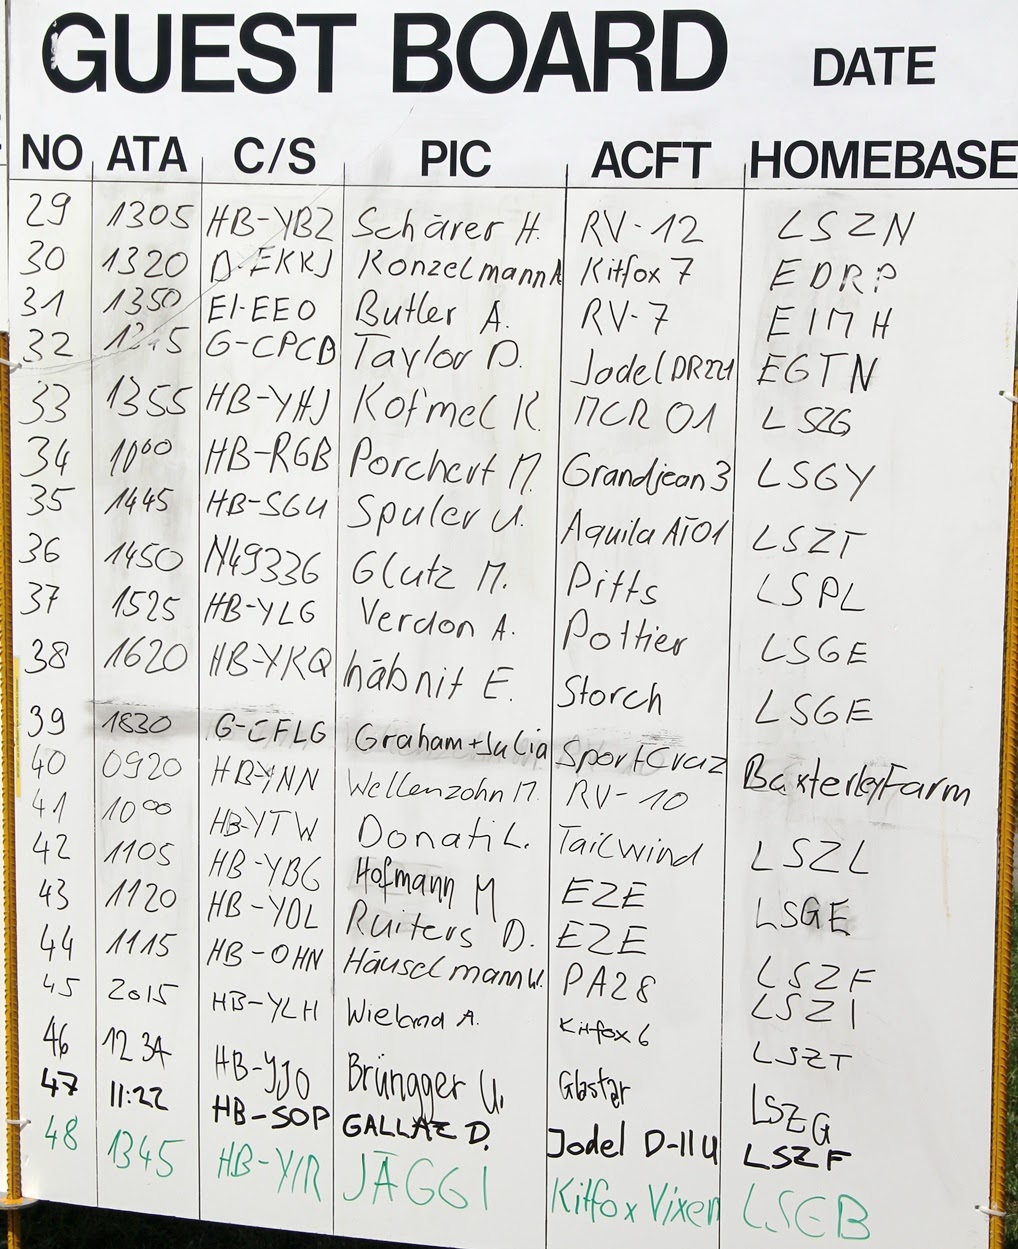 GUEST BOARD DATE
NO ATA C/S PIC ACFT HOMEBASE
29 1305 HB-YBZ Schärer H. RV-12 LSZN
30 1320 D-EKKJ Konzelmann A Kitfox 7 EDRP
31 1350 EI-EEO Butler A. RV-7 EIMH
32 G-CPCD Taylor D. Jodel DR221 EGTN
33 1355 HB-YHJ Kofmel K. MCR 01 LSZG
34 10⁰⁰ HB-RGB Porchert M. Grandjean 3 LSGY
35 1445 HB-SGU Spuler U. Aquila AT01 LSZT
36 1450 N49336 Glutz M. Pitts LSPL
37 1525 HB-YLG Verdon A. Pottier LSGE
38 1620 HB-YKQ häbnit E. Storch LSGE
39 1830 G-CFLG Graham+Julia SportCruz Baxterley Farm
40 0920 HB-YNN Wellenzohn M. RV-10
41 10⁰⁰ HB-YTW Donati L. Tailwind LSZL
42 1105 HB-YBG Hofmann M EZE LSGE
43 1120 HB-YOL Ruiters D. EZE
44 1115 HB-OHN Häuselmann W. PA28 LSZF
45 2015 HB-YLH Wieland A. Kitfox 6 LSZI
46 1234 HB-YJO Brüngger U. Glastar LSZT
47 11:22 HB-SOP GALLAZ D. Jodel D-11U LSZG
LSZF
48 1345 HB-YIR JÄGGI Kitfox Vixen LSGB